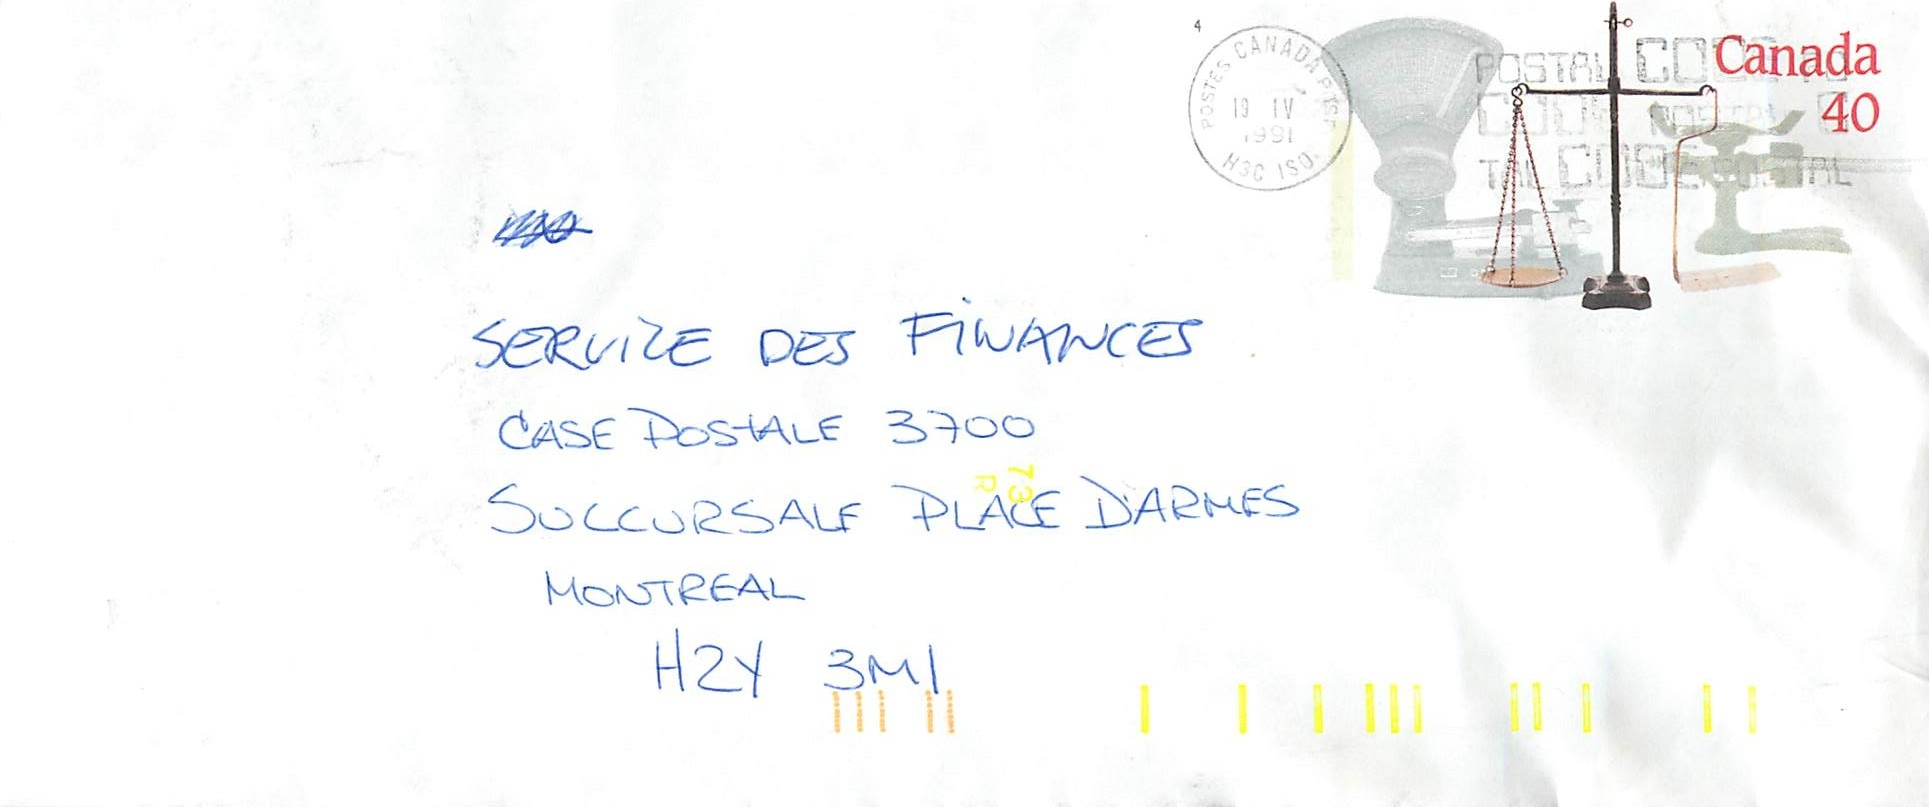 4
POSTES CANADA POST
19 IV
1991
H3C 1S0
Canada
40
POSTAL CODE
CODE POSTAL
TAL CODE POSTAL
SERVICE DES FINANCES
CASE POSTALE 3700
73
R
SUCCURSALE PLACE D'ARMES
MONTREAL
H2Y 3M1